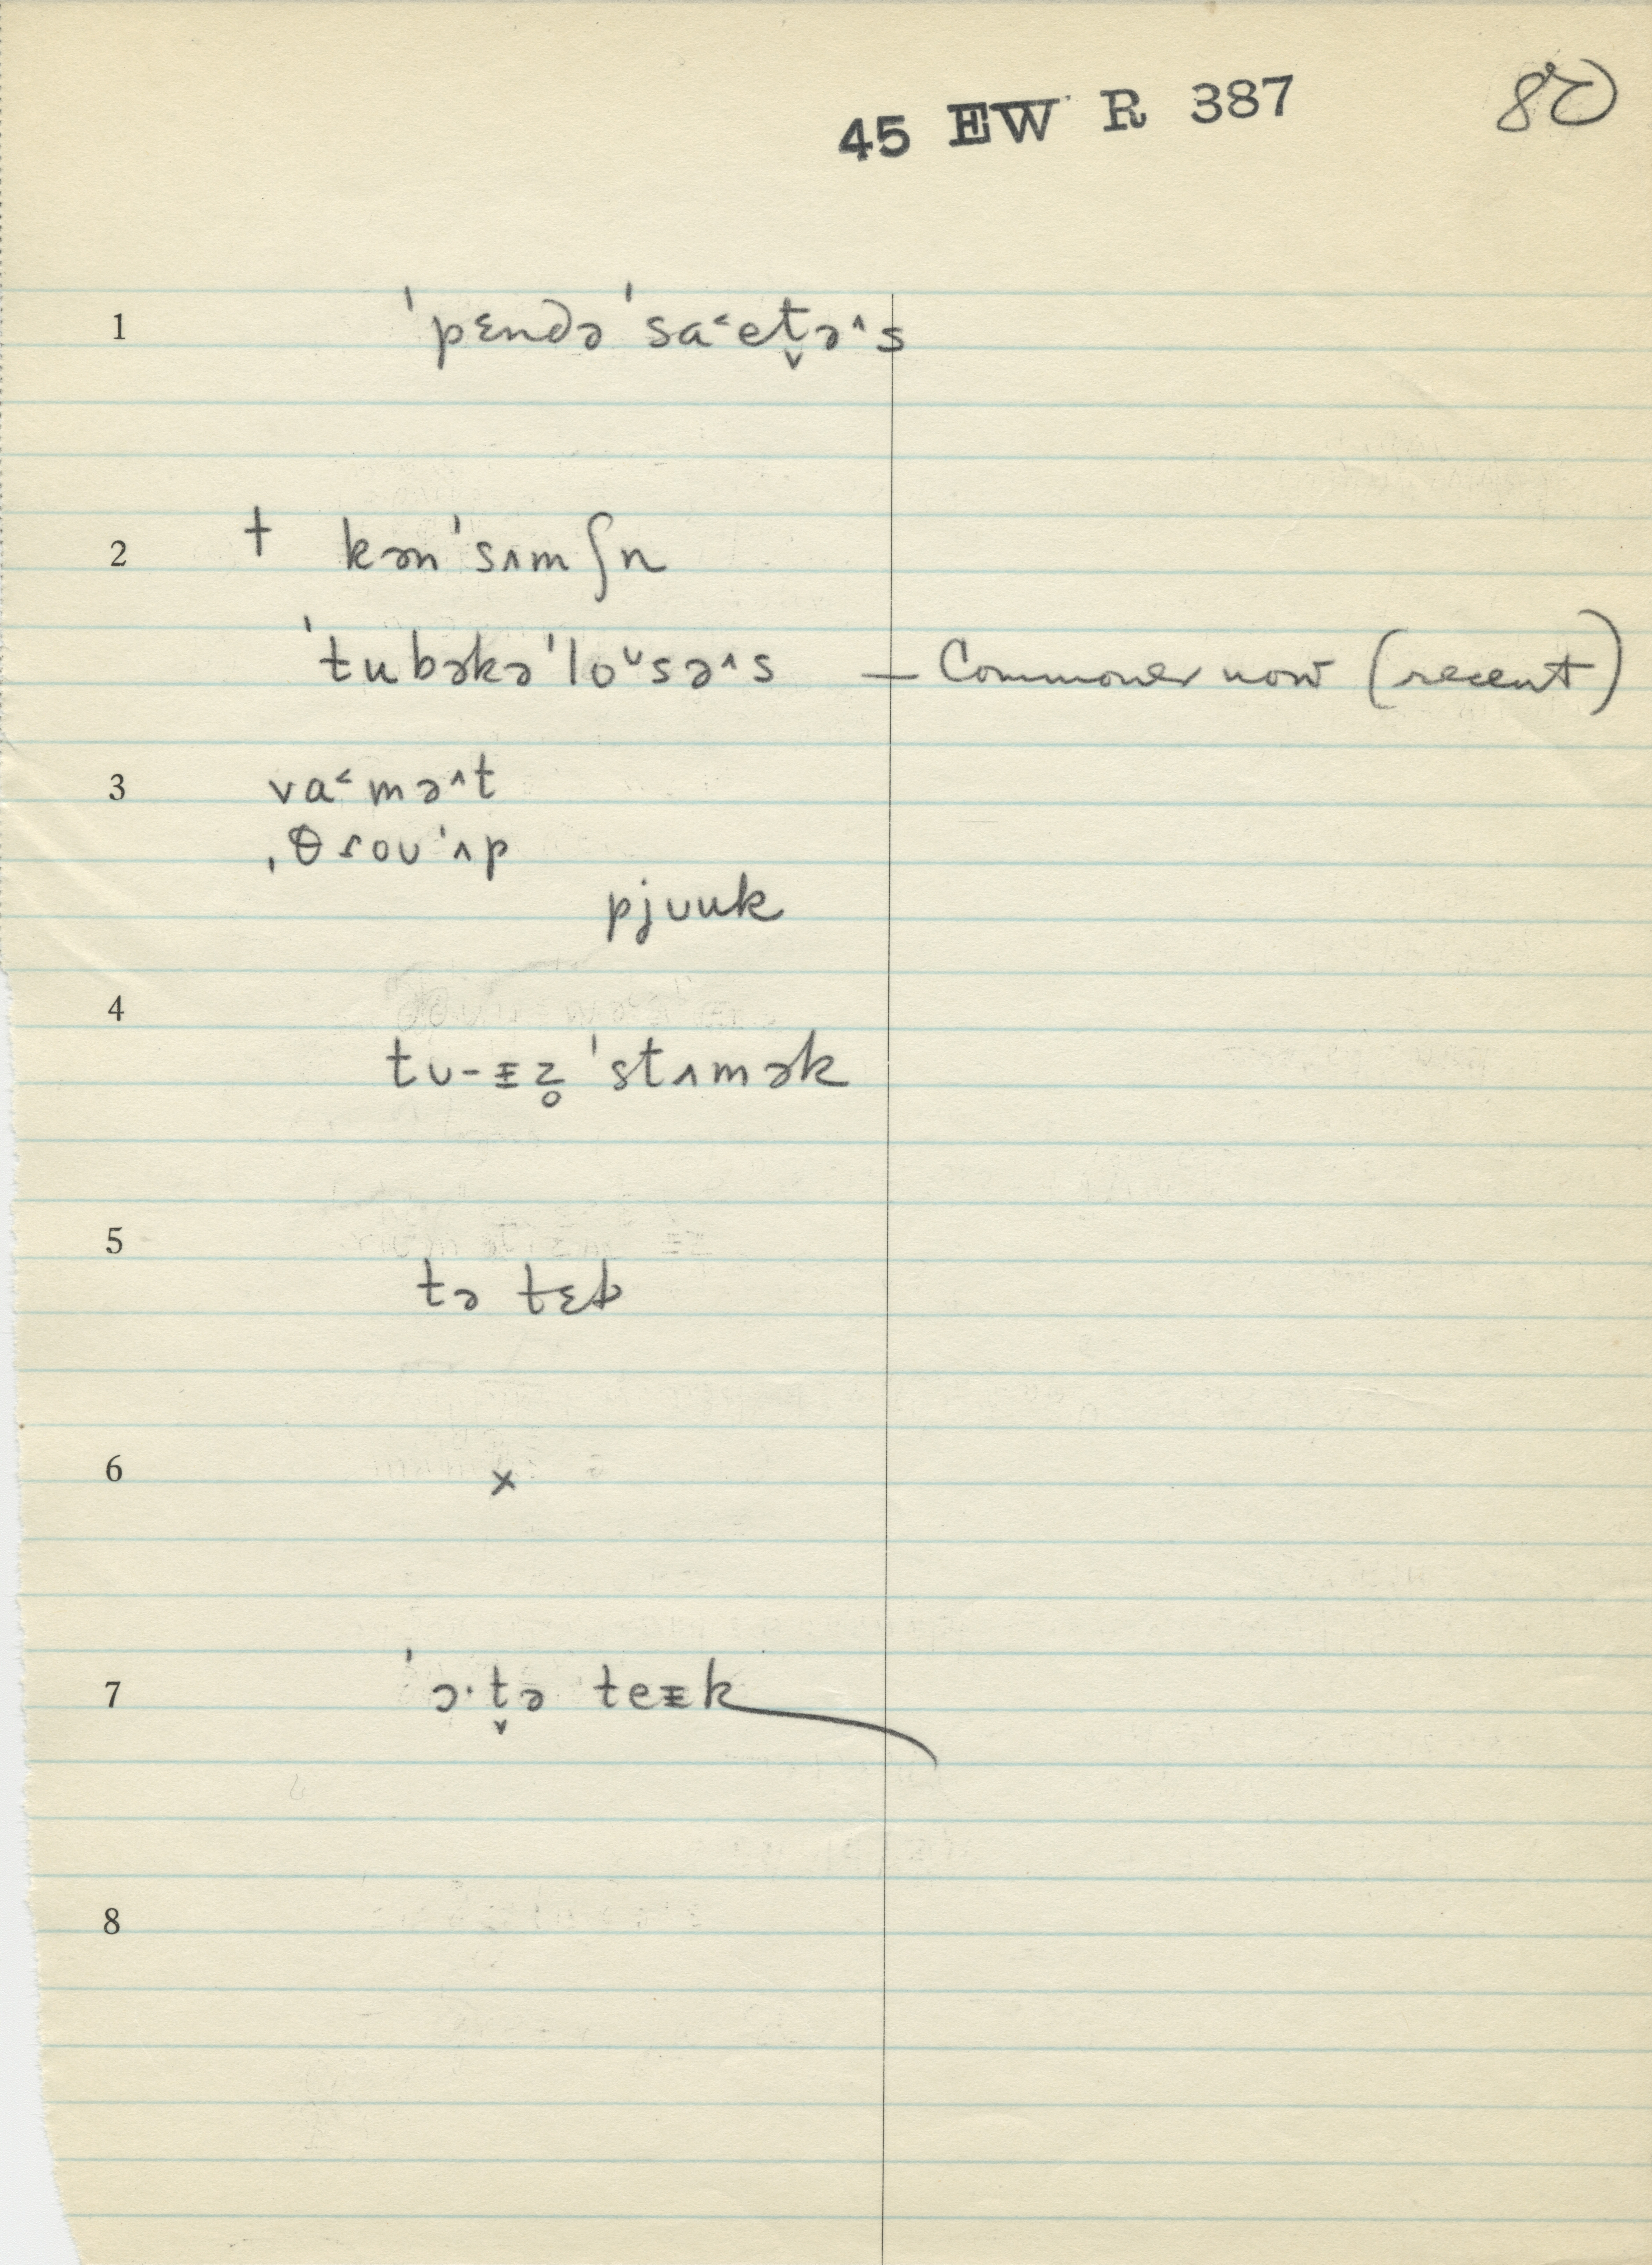 45 EW R 387 80
1 ˈpɛndəˈsa˂et̬ə˄s
2 † kənˈsʌmʃn
ˈtubəkəˈloᴜsə˄s — Commoner now (recent)
3 va˂mə˄t
ˌθroʊˈʌp
pjʊuk
4
tʊ-ᵻz̥ ˈstʌmək
5
tə tɛk
6 ×
7 ˈɔ·t̬ə teᵻk
8